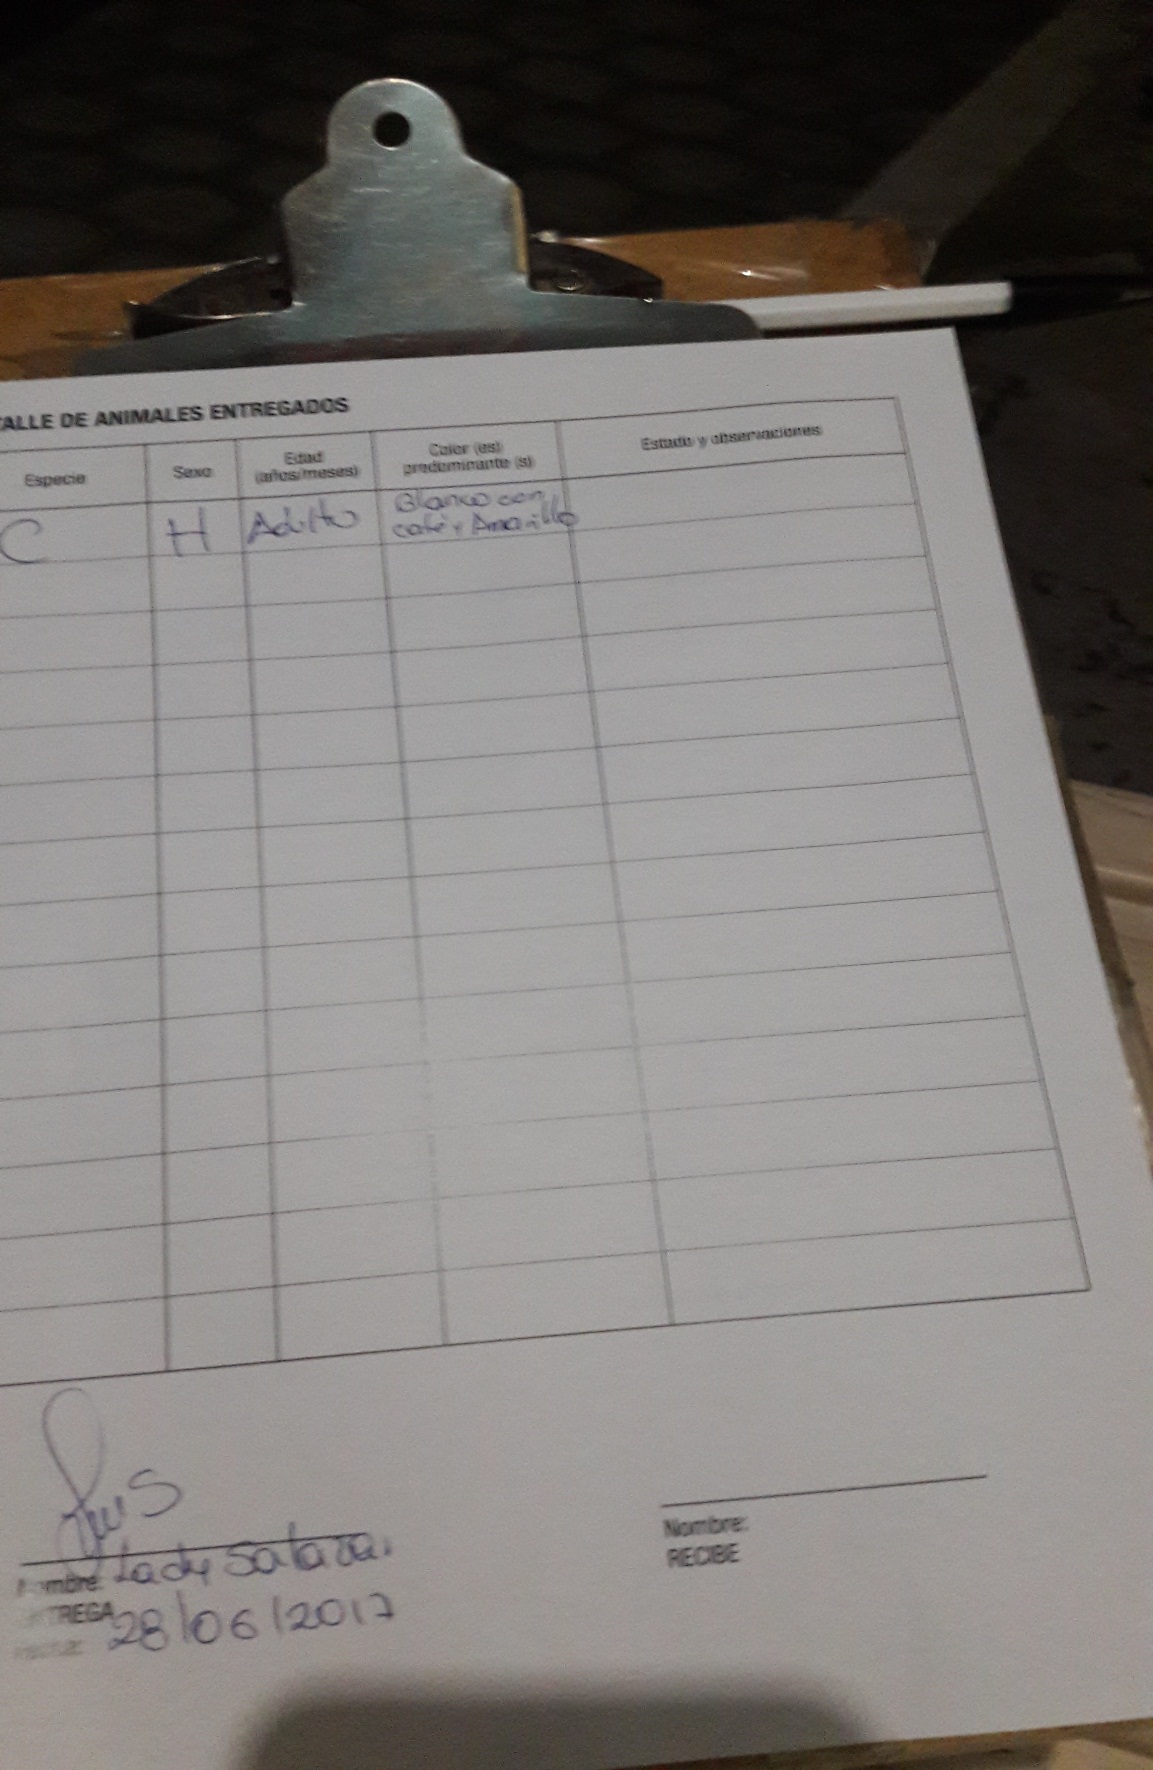 TALLE DE ANIMALES ENTREGADOS
Especie Sexo Edad (años/meses) Color (es) predominante (s) Estado y observaciones
C H Adulto Blanco con café y Amarillo
Nombre: Lady Salazar
ENTREGA
Fecha: 28/06/2017
Nombre:
RECIBE